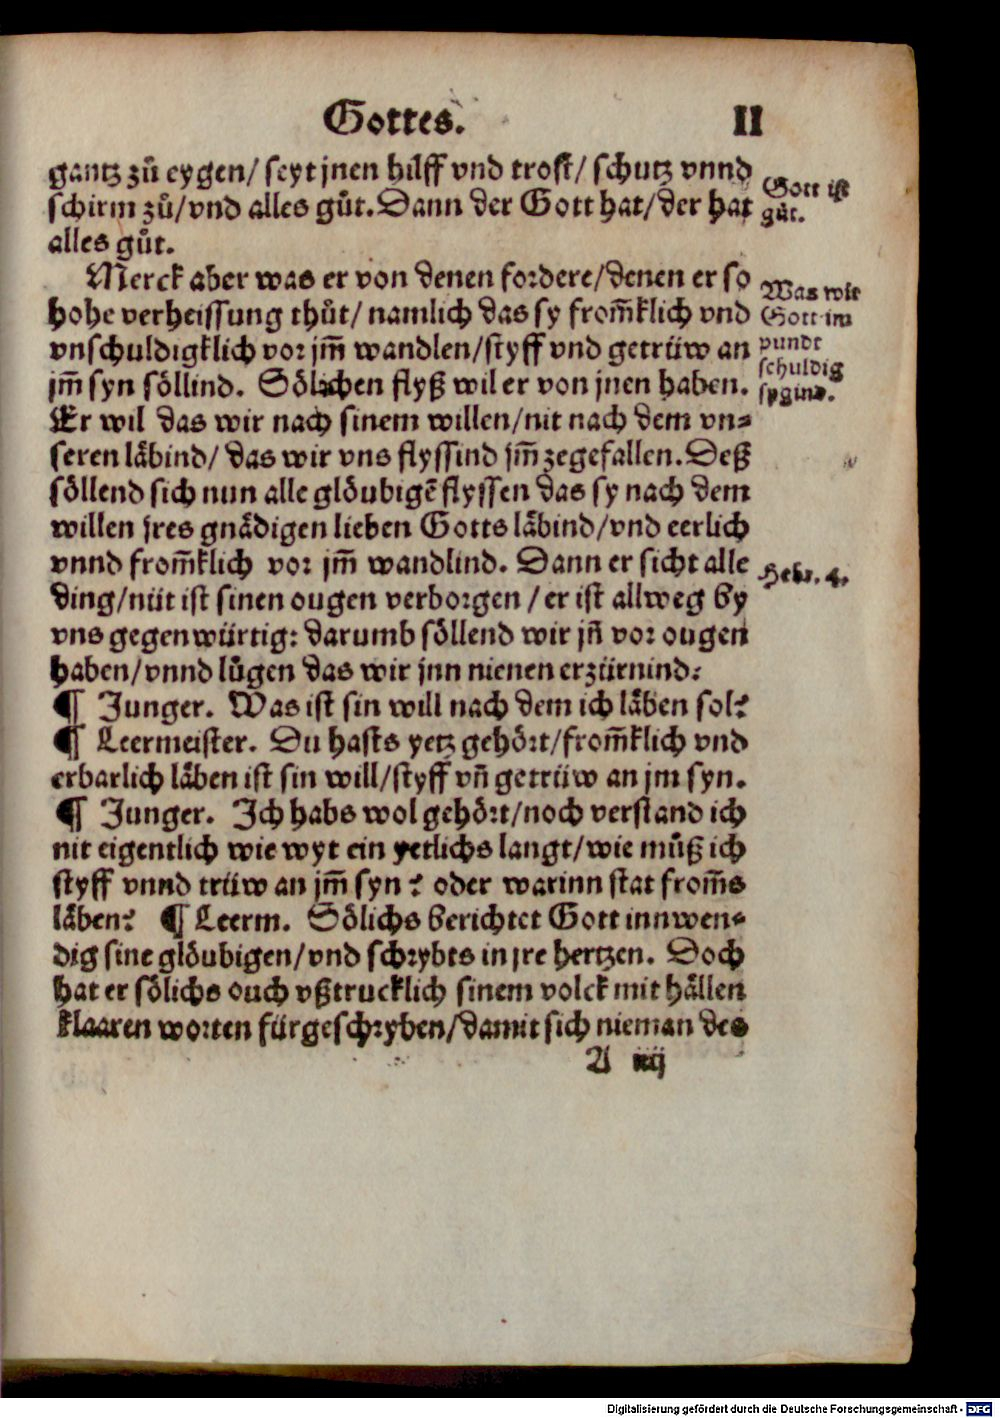 Gottes. II
gantz zů eygen/ seyt jnen hilff vnd trost/ schutz vnnd
schirm zů/vnd alles gůt. Dann der Gott hat/der hat
alles gůt.
Gott ist
gůt.
Merck aber was er von denen fordere/denen er so
hohe verheissung thůt/ namlich das sy from̃klich vnd
vnschuldigklich vor jm̃ wandlen/styff vnd getrüw an
jm̃ syn söllind. Sölichen flyß wil er von jnen haben.
Was wir
Gott im
pundt
schuldig
sygind.
Er wil das wir nach sinem willen/nit nach dem vn⸗
seren läbind/ das wir vns flyssind jm̃ zegefallen. Deß
söllend sich nun alle glöubigẽ flyssen das sy nach dem
willen jres gnädigen lieben Gotts läbind/vnd eerlich
vnnd from̃klich vor jm̃ wandlind. Dann er sicht alle
Hebr. 4.
ding/nüt ist sinen ougen verborgen /er ist allweg by
vns gegenwürtig: darumb söllend wir jñ vor ougen
haben/vnnd lůgen das wir jnn nienen erzürnind:
¶ Junger. Was ist sin will nach dem ich läben sol?
¶ Leermeister. Du hasts yetz gehört/from̃klich vnd
erbarlich läben ist sin will/styff vñ getrüw an jm syn.
¶ Junger. Ich habs wol gehört/noch verstand ich
nit eigentlich wie wyt ein yetlichs langt/wie můß ich
styff vnnd trüw an jm̃ syn? oder warinn stat from̃s
läben? ¶ Leerm. Sölichs berichtet Gott innwen⸗
dig sine glöubigen/vnd schrybts in jre hertzen. Doch
hat er sölichs ouch vßtrucklich sinem volck mit hällen
klaaren worten fürgeschryben/damit sich nieman des
A iiij
Digitalisierung gefördert durch die Deutsche Forschungsgemeinschaft - DFG